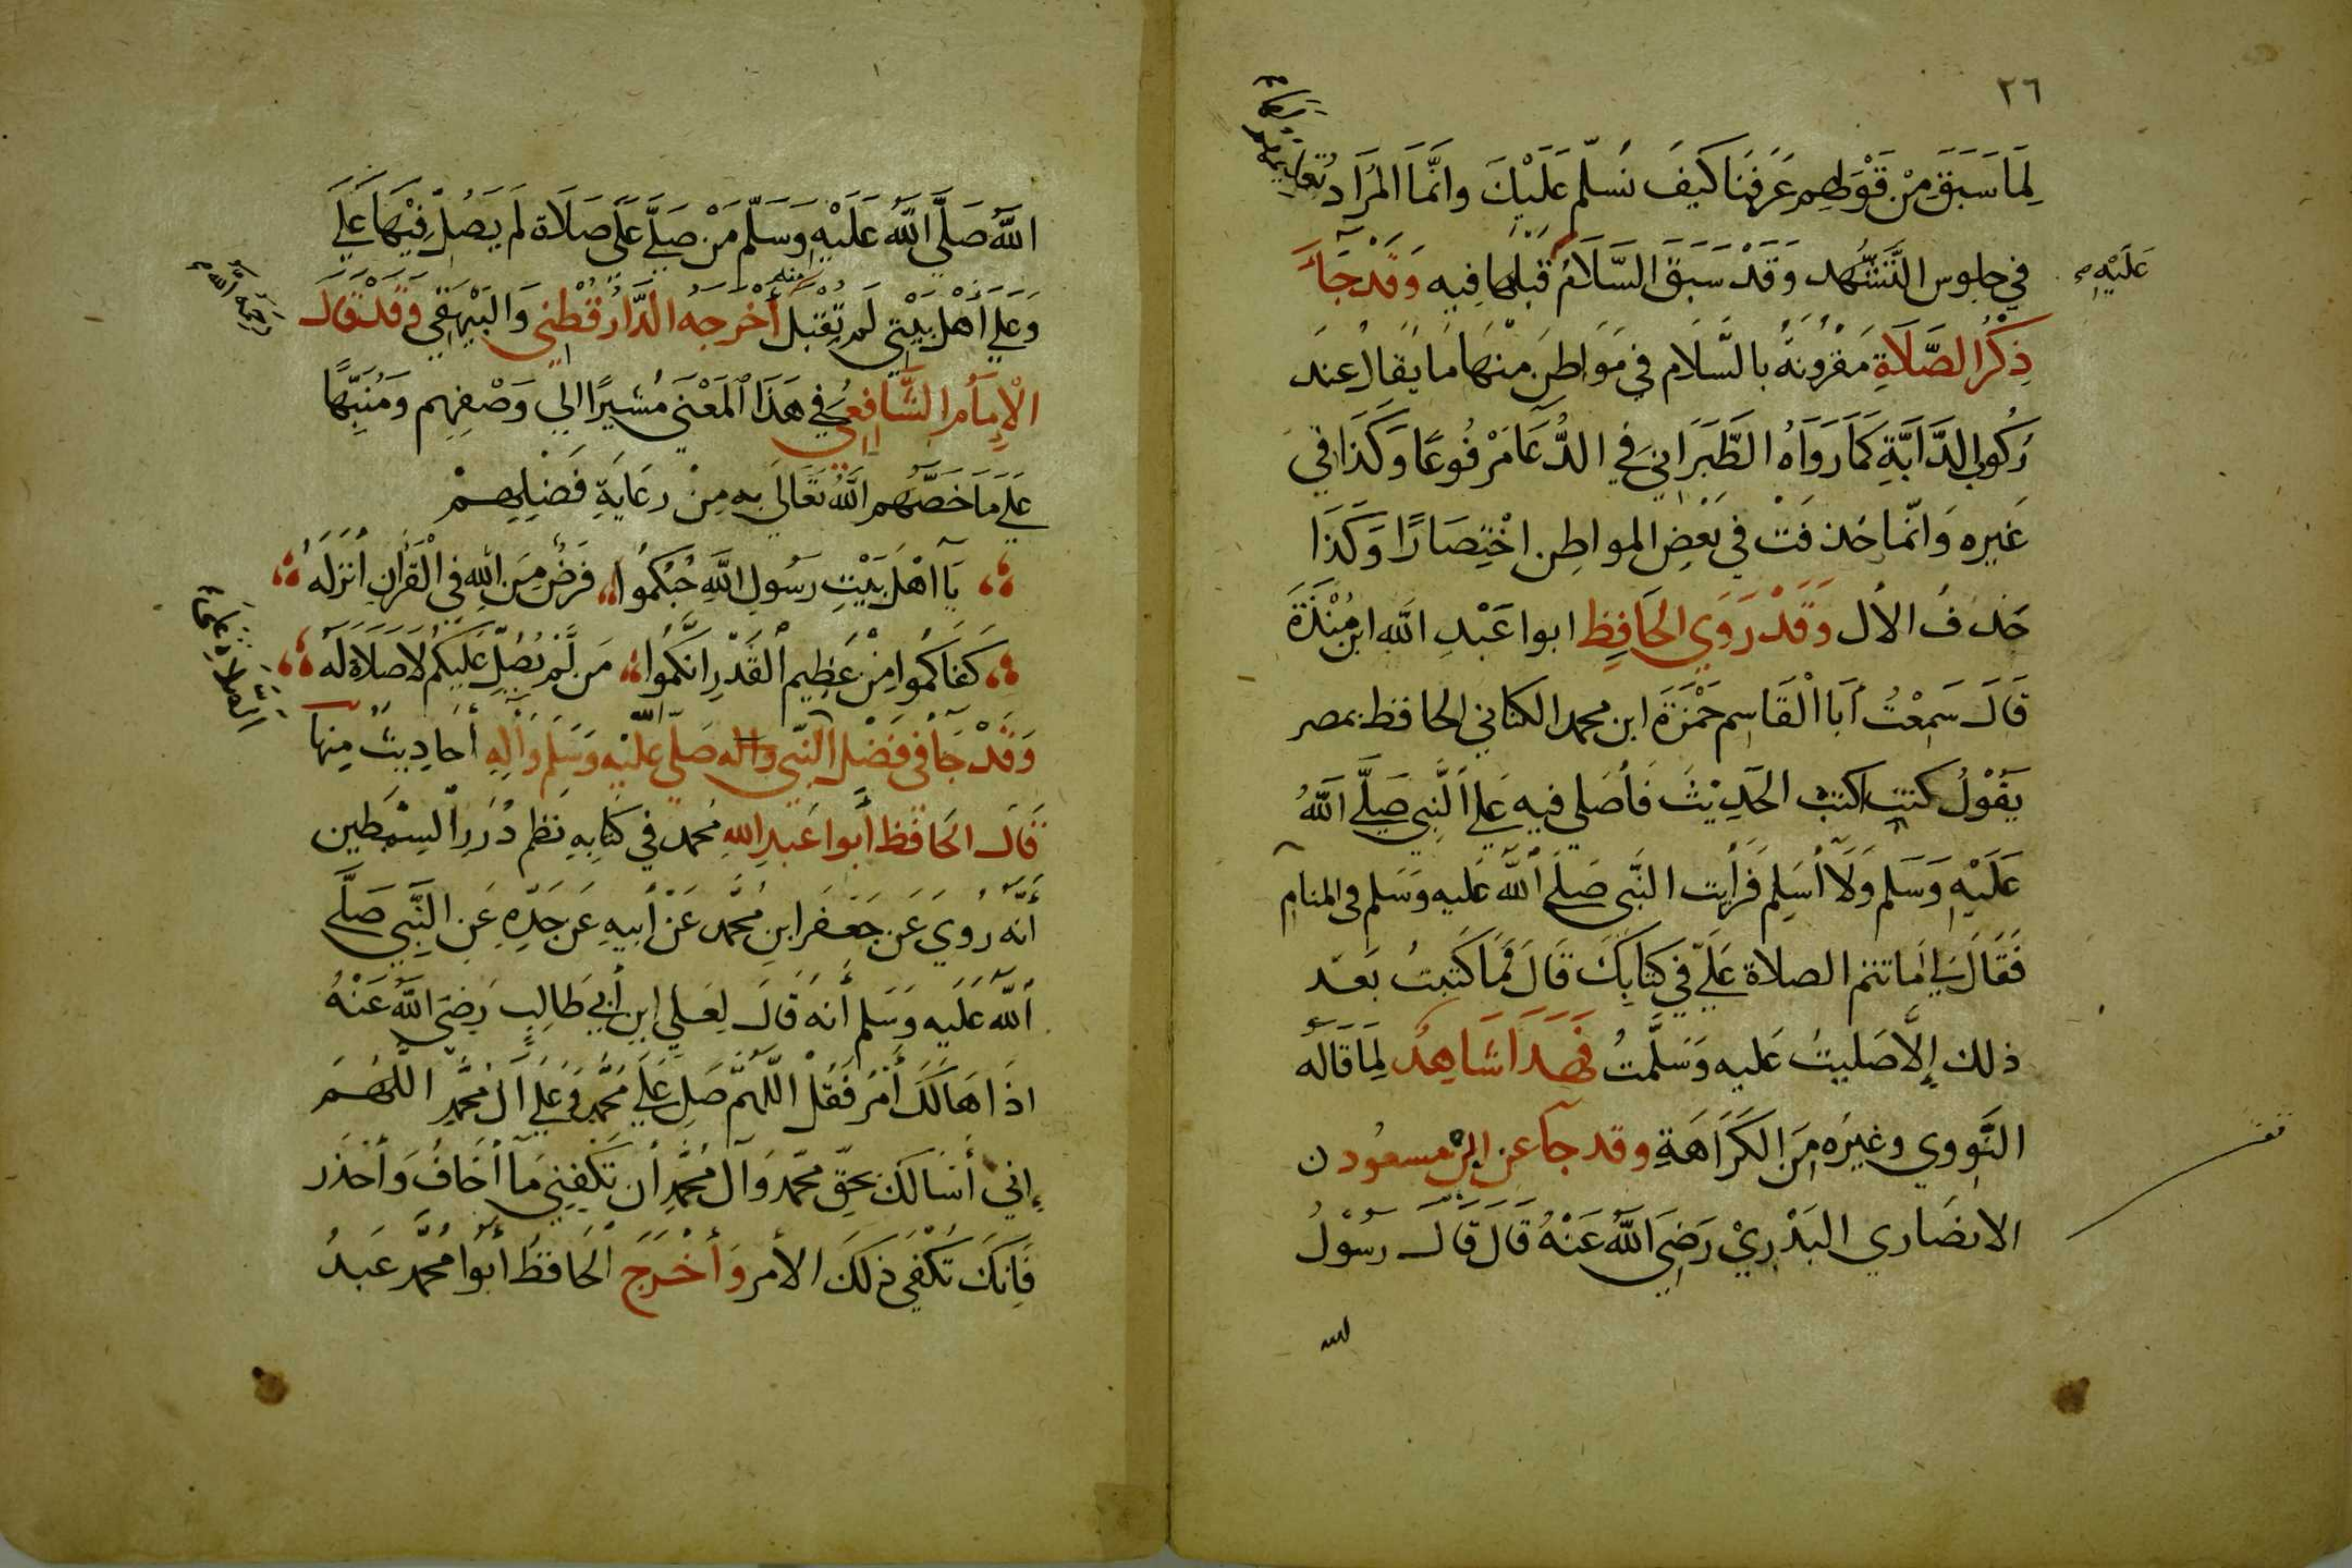 ٢٦
لِمَا سَبَقَ مِنْ قَوْلِهِم عَرَفنَا كَيفَ نُسَلّم عَلَيْكَ وانَّمَا المُرَاد تعليمهم
في جلوس التَّشَهُّد وَقَدْ سَبَقَ السَّلَامُ قَبْلهَا فِيه وَقَدْ جَاءَ
عَلَيْهِ
ذِكْرُ الصَّلَاةِ مَقرُونَةً بالسَّلَام في مَوَاطِنَ مِنْهَا مَا يُقَالُ عِندَ
رُكُوبِ الدَّابَّةِ كَمَا رَوَاهُ الطَّبَرَاني فِي الدُّعَا مَرْفُوعًا وَكَذَا في
غَيره وَانَّما حُذفَتْ في بَعْضِ المواطِن اخْتِصَارًا وَكَذَا
حَذفُ الأل وَقَدْ رَوَي الحَافِظ ابوا عَبْدِ اللَّه ابن مَنْدَةَ
قَالَ سَمِعْتُ أبَا الْقَاسِم حَمْزَةَ ابن محمد الكناني الحافظ بمصر
يَقُوْلُ كنت اكتب الحَدِيْثَ فَأصَلي فيه عَلي النَّبِي صَلَّي اللَّهُ
عَلَيْهِ وَسَلم وَلَا أسَلِم فَرَأيت النَّبي صَلي اللَّه عَليه وَسَلم في المنام
فَقَالَ لي امَا تتم الصلاة عَلَيّ في كِتَابِكَ قَالَ فَمَا كَتَبتُ بَعدَ
ذلك إلَّا صَليتُ عَليه وَسَلَّمتُ فهَذَا شَاهِدٌ لِمَا قَالَه
النَّووي وغيرُه مِنَ الكَرَاهَةِ وقد جَاء عن ابن مسعُود ن
الانصَاري البَدْرِيْ رَضِيَ اللَّهُ عَنْهُ قَالَ قَالَ رسُوْلُ
الله
اللَّه صَلَّي اللَّهُ عَلَيْهِ وَسَلّم مَنْ صَلَّي عَلَيَّ صَلَاة لَم يَصُلِّ فِيْهَا عَلَي
وَعَلي أهْل بَيْتِي لَم تُقْبَل منه أخْرَجَه الدَّارقُطْنِي وَالبَيْهَقِي وَقَدْ قَالَ
الْإمَامُ الشَّافِعي في هَذَا الْمَعْنَى مُشيرًا الي وَصْفِهِم وَمُنَبِّهًا
رحمه الله
عَلَي مَا خَصَّهُم اللَّهُ تَعَالَي بِه مِنْ رعَايَةِ فَضْلِهِمْ
يَا اهْلَ بَيْتِ رَسُولِ اللَّهِ حُبُّكمُوا فَرضٌ مِنَ اللَّهِ فِي الْقُرْآنِ أنزَلَهُ
كَفَاكُموا مِنْ عَظِيم الْقَدْرِ انَّكمُوا مَن لَمْ يُصَلِّ عَلَيكُم لَا صَلَاةَ لَه
وَقَدْ جَاءَ فِي فَضْل النَّبي واله صَلّى الله عَلَيْه وَسَلَم وَألِهِ أحَادِيثُ مِنها
قَالَ الحَافظ أبوا عَبدِ اللهِ مُحمد في كتابِهِ نَظم دُرَرِ السِّمْطَين
أنَّه رُوِيَ عَن جَعفَر ابن مُحَّمد عَنْ أبيهِ عَن جَدّهِ عَنِ النَّبِي صَلَّي
اللَّه عَلَيه وَسَلم أنهُ قَالَ لِعَلي ابن أبي طَالِبٍ رَضِيَ اللَّهُ عَنْهُ
اذَا هَالَكَ أمْرٌ فَقُلْ اللَّهُمَّ صَلِ عَلَي مُحَمَّدٍ وَعَلي آلِ مُحَمَّدٍ اللَّهُمَ
إني أسَالكَ بِحَقِّ مُحَمّد وَآل مُحَّمدٍ أن تَكْفِيَنِي مَا أخَافُ وَأحْذَر
فَانكَ تُكْفَي ذَلكَ الأمر وَأخْرَجَ الْحَافظُ أبُوا مُحَّمد عَبدُ